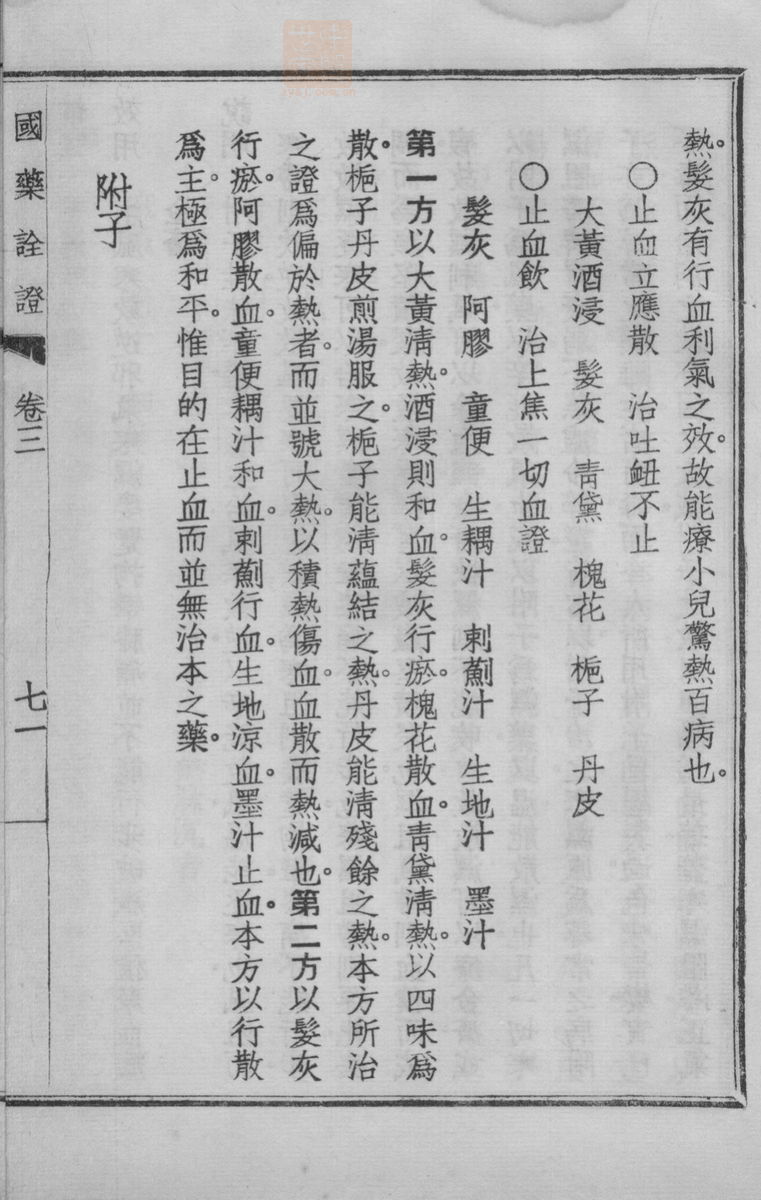 熱。髮灰有行血利氣之效。故能療小兒驚熱百病也。
〇止血立應散　治吐衄不止
大黃酒浸　髮灰　靑黛　槐花　梔子　丹皮
〇止血飲　治上焦一切血證
髮灰　阿膠　童便　生耦汁　刺薊汁　生地汁　墨汁
第一方以大黃淸熱。酒浸則和血。髮灰行瘀。槐花散血。靑黛淸熱。以四味爲
散。梔子丹皮煎湯服之。梔子能淸蘊結之熱。丹皮能淸殘餘之熱。本方所治
之證爲偏於熱者。而並號大熱。以積熱傷血。血散而熱減也。第二方以髮灰
行瘀。阿膠散血。童便耦汁和血。刺薊行血。生地涼血。墨汁止血。本方以行散
爲主。極爲和平。惟目的在止血而並無治本之藥。
附子
國藥詮證　卷三　七一